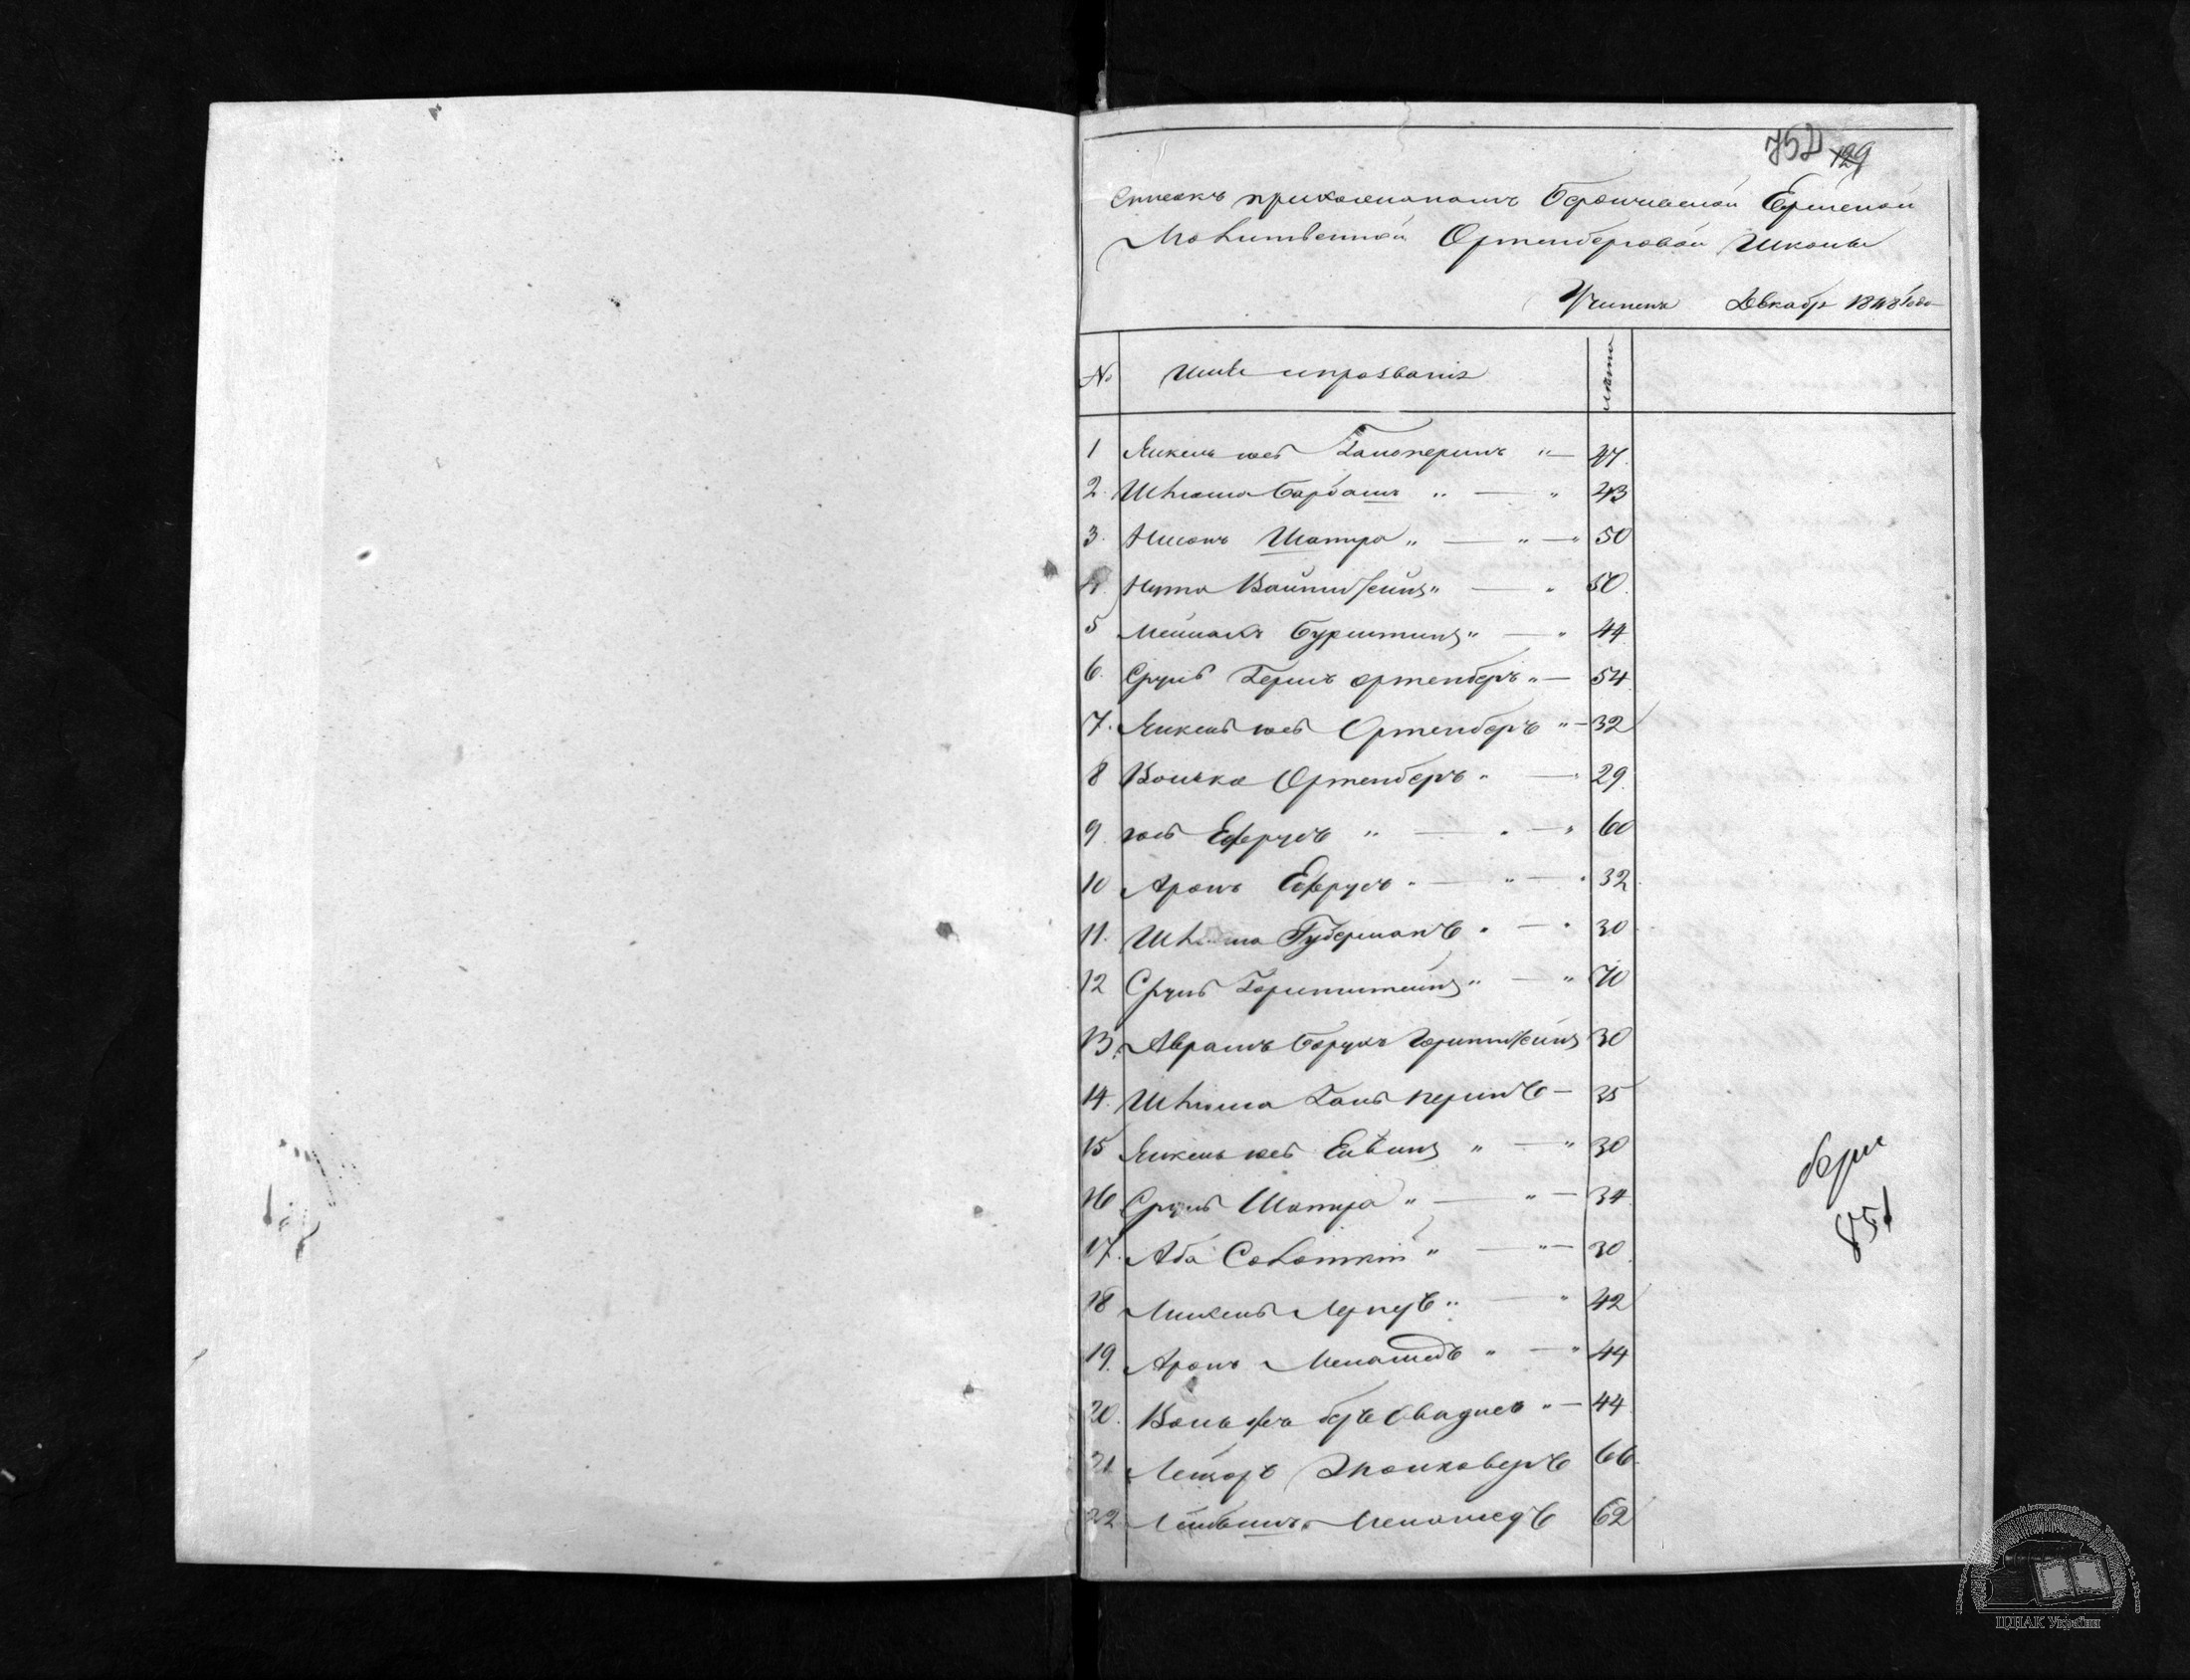 752 129
Списокъ прихожанамъ Бердичевской Еврейской
Молитвенной Ортенберговой Школы
Учиненъ Декабр 1848 Года
№ Имя и прозванiя лѣта
1 Янкель юсь Гальперинъ „ — 47
2 Шлюма Барбашъ „ — „ 43
3. Нисонъ Шапиро „ — „ — „ 50
4. Нута Вайнштейнъ „ — „ 50.
5 Мейлахъ Бурштинъ „ — „ 44
6. Сруль Гершъ ортенберъ „ — 54
7. Янкель юсь Ортенберъ „ — 32
8 Волька Ортенберъ „ — 29
9 юсь Ефрусъ „ — „ — „ 60
10 Аронъ Ефрусъ „ — „ — „ 32
11. Шлюма Губерманъ „ — „ 30
12 Сруль Горинштейнъ „ — „ 70
13. Аврамъ Борухъ Горинштейнъ 30
14. Шлюма Гальперинъ — 35
15 Янкель юсь Елвинъ „ — „ 30
16 Сруль Шапиро „ — „ — 34
17. Аба Солоткiй „ — „ — 30
18 „ — „ 42
19. Аронъ Менашедъ „ — „ 44
20. Вольфъ беръ Овадиев „ — 44
21 Лейзоръ 66.
22 Лейбишъ Менашедъ 62
851
ЦДIАК України